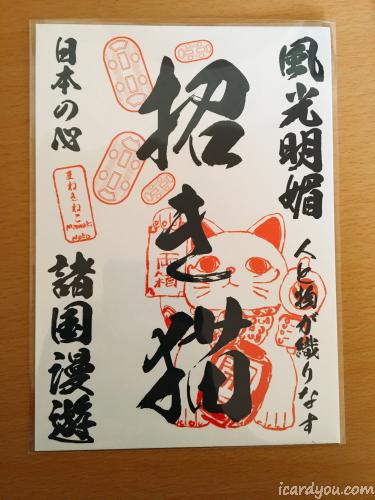 風光明媚
人と猫が織りなす
招き猫
日本の心
まねきねこ
Maneki
Neko
諸国漫遊
icardyou.com